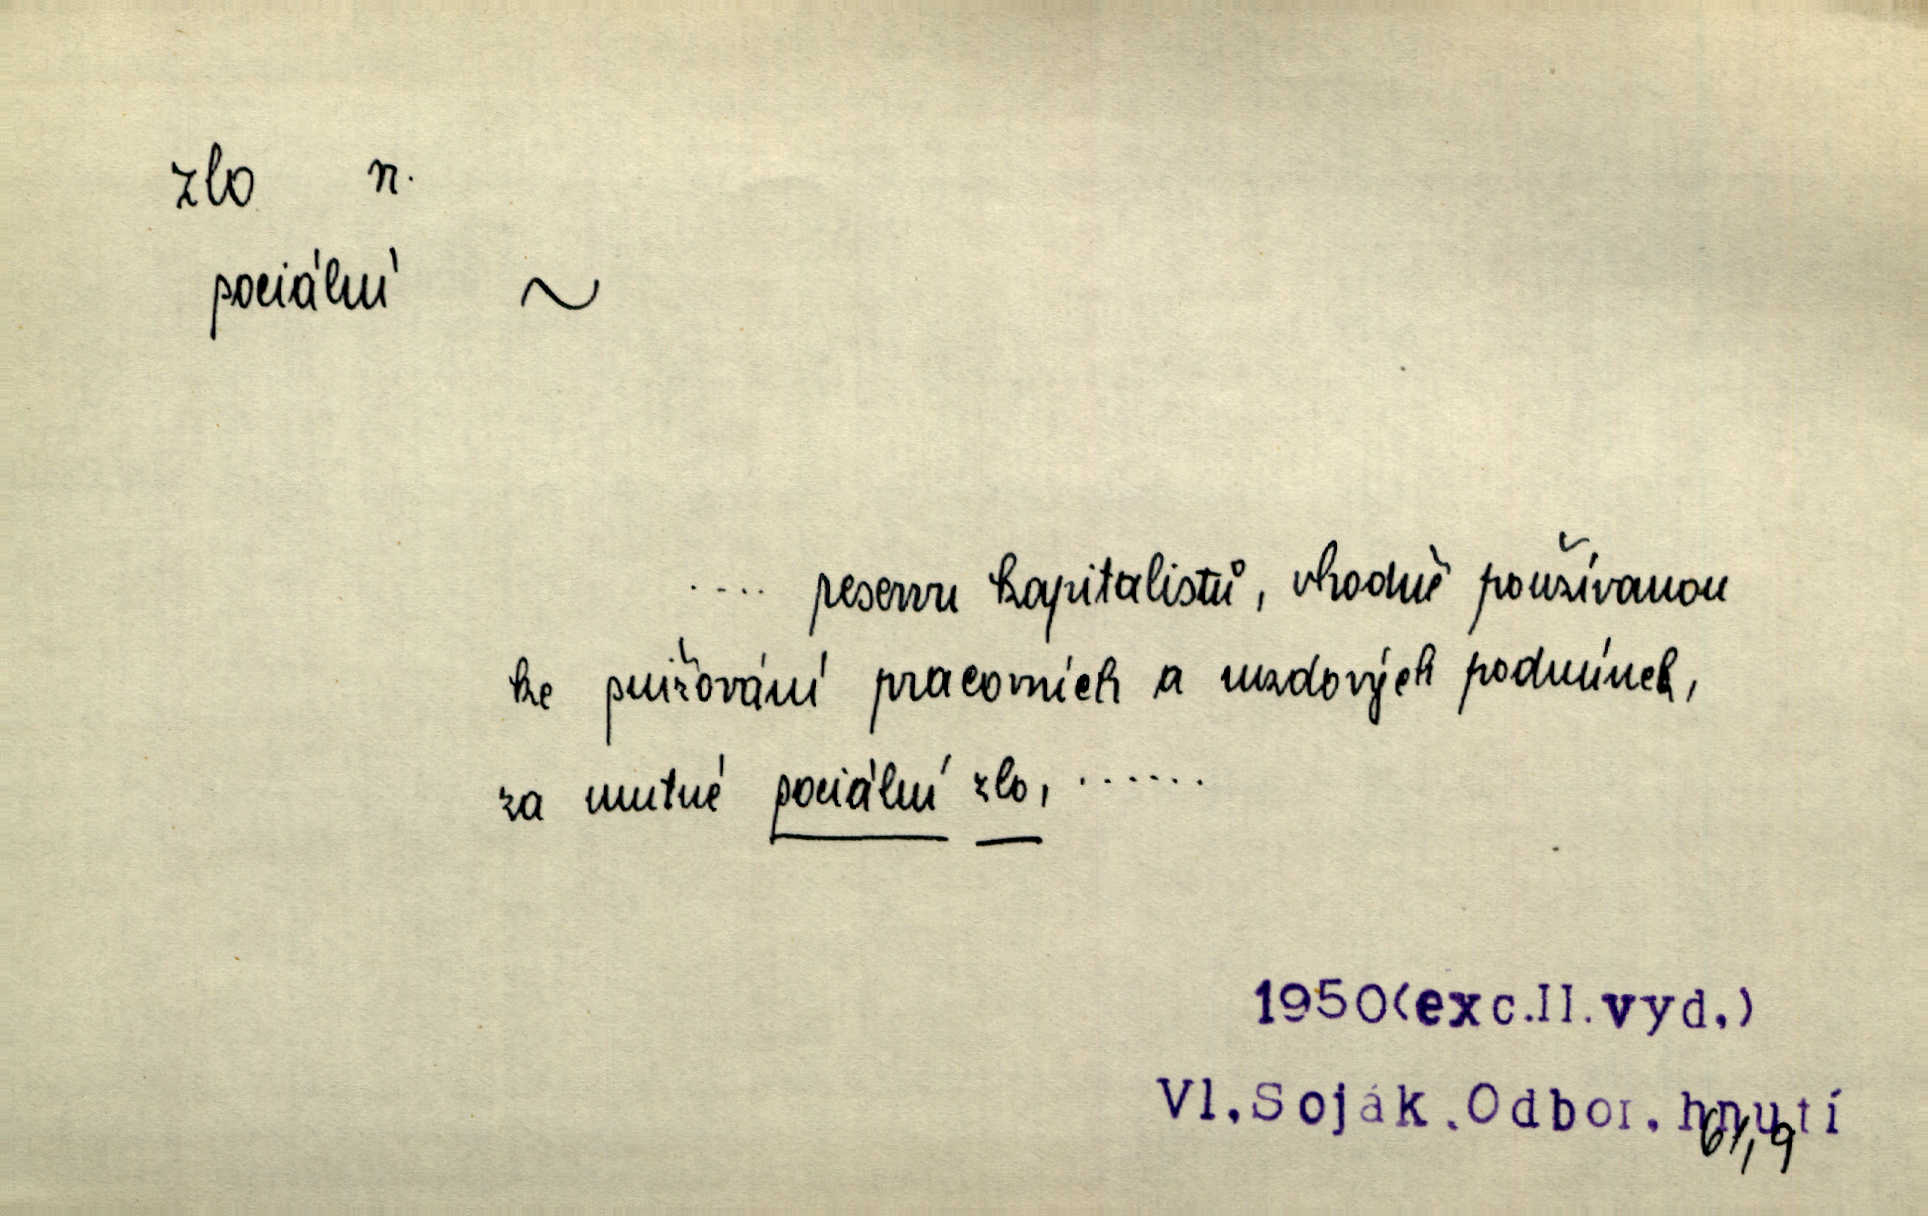 zlo n.
sociální ~
.... reservu kapitalistů, vhodně používanou
ke snižování pracovních a mzdových podmínek,
za nutné sociální zlo, ......
1950(exc.II.vyd.)
Vl.Soják.Odbor.hnutí
61,9